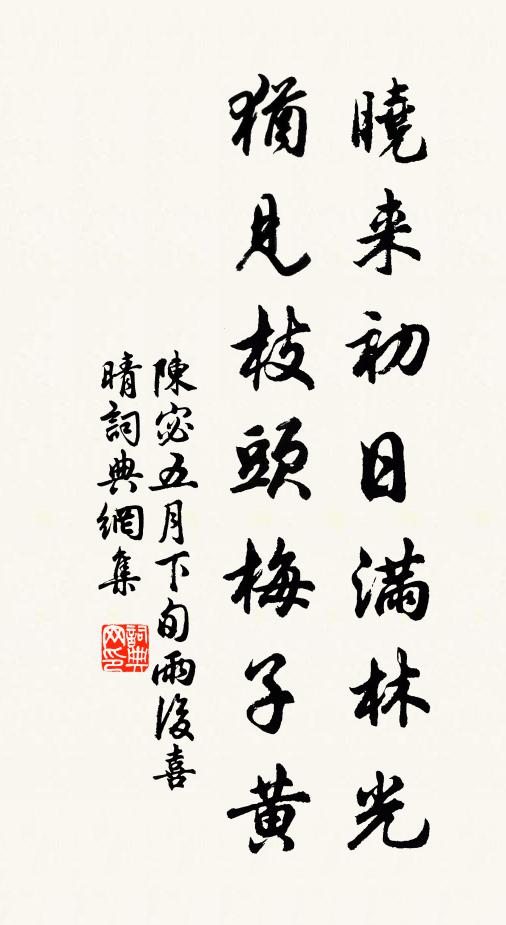 曉来初日満林光
猶見枝頭梅子黄
陳宓五月下旬雨後喜
晴詞典網集
詞典网印